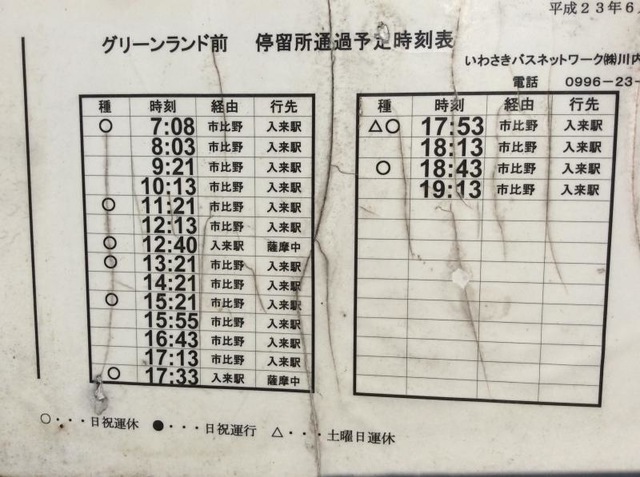 平成23年6
グリーンランド前 停留所通過予定時刻表
いわさきバスネットワーク㈱川内
電話 0996-23-
種 時刻 経由 行先
○ 7:08 市比野 入来駅
8:03 市比野 入来駅
9:21 市比野 入来駅
10:13 市比野 入来駅
○ 11:21 市比野 入来駅
12:13 市比野 入来駅
○ 12:40 入来駅 薩摩中
○ 13:21 市比野 入来駅
14:21 市比野 入来駅
○ 15:21 市比野 入来駅
15:55 市比野 入来駅
16:43 市比野 入来駅
17:13 市比野 入来駅
○ 17:33 入来駅 薩摩中
種 時刻 経由 行先
△○ 17:53 市比野 入来駅
18:13 市比野 入来駅
○ 18:43 市比野 入来駅
19:13 市比野 入来駅
○・・・日祝運休 ●・・・日祝運行 △・・・土曜日運休